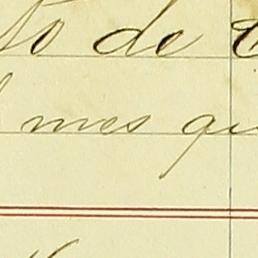 to de
mes qu